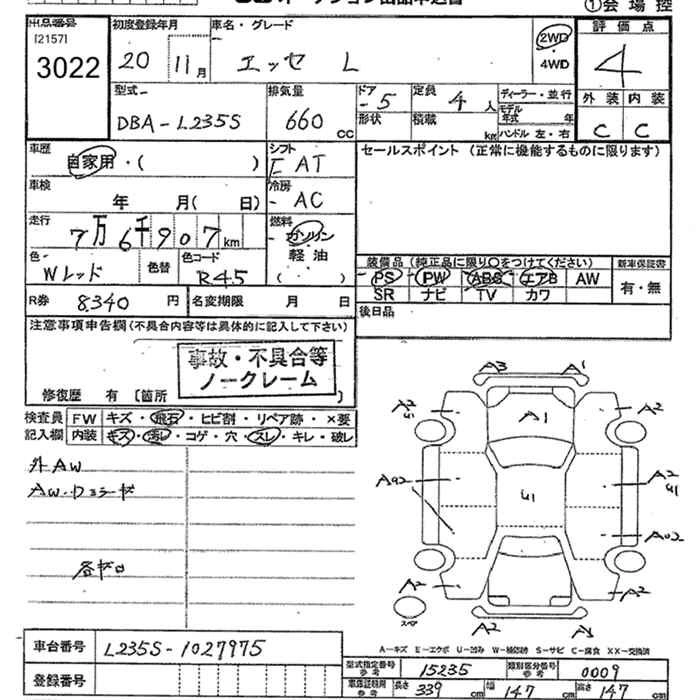 ①会場控
出品番号
[2157]
3022
初度登録年月
20 11月
車名・グレード
エッセ L
2WD
・
4WD
評価点
4
外装 内装
C C
型式
DBA-L235S
排気量
660 CC
ドア
- 5
形状
定員
4 人
積載 km
ディーラー・並行
モデル年式 年
ハンドル 左・右
車歴
自家用・( )
シフト
F AT
セールスポイント (正常に機能するものに限ります)
車検
年 月( 日)
冷房
- AC
走行
7万6千907km
燃料
- ガソリン
軽油
( )
色
Wレッド
色替
色コード
R45
装備品 (純正品に限り○をつけてください)
新車保証書
PS PW ABS エアB AW
SR ナビ TV カワ
有・無
R券 8,340 円
名変期限 月 日
後日品
注意事項申告欄(不具合内容等は具体的に記入して下さい)
事故・不具合等
ノークレーム
修復歴 有 [箇所
検査員 FW キズ・飛石・ヒビ割・リペア跡・×要
記入欄 内装 キズ・汚レ・コゲ・穴・スレ・キレ・破レ
外AW
各キロ
A3 A1
A2
U1
A1
A2
A02
U1
A2
U1
A02
A2
A2
スペア
A2
A-キズ E-エクボ U-凹み W-補修跡 S-サビ C-腐食 XX-交換済
車台番号 L235S-1027975
型式指定番号
参考
15235
類別区分番号
参考
0009
登録番号
車庫証明用
参考
長さ 339 cm
幅 147 cm
高さ 147 cm